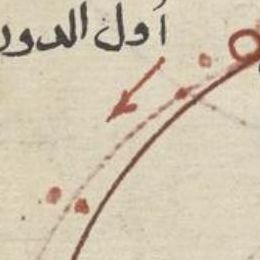 أول الدور